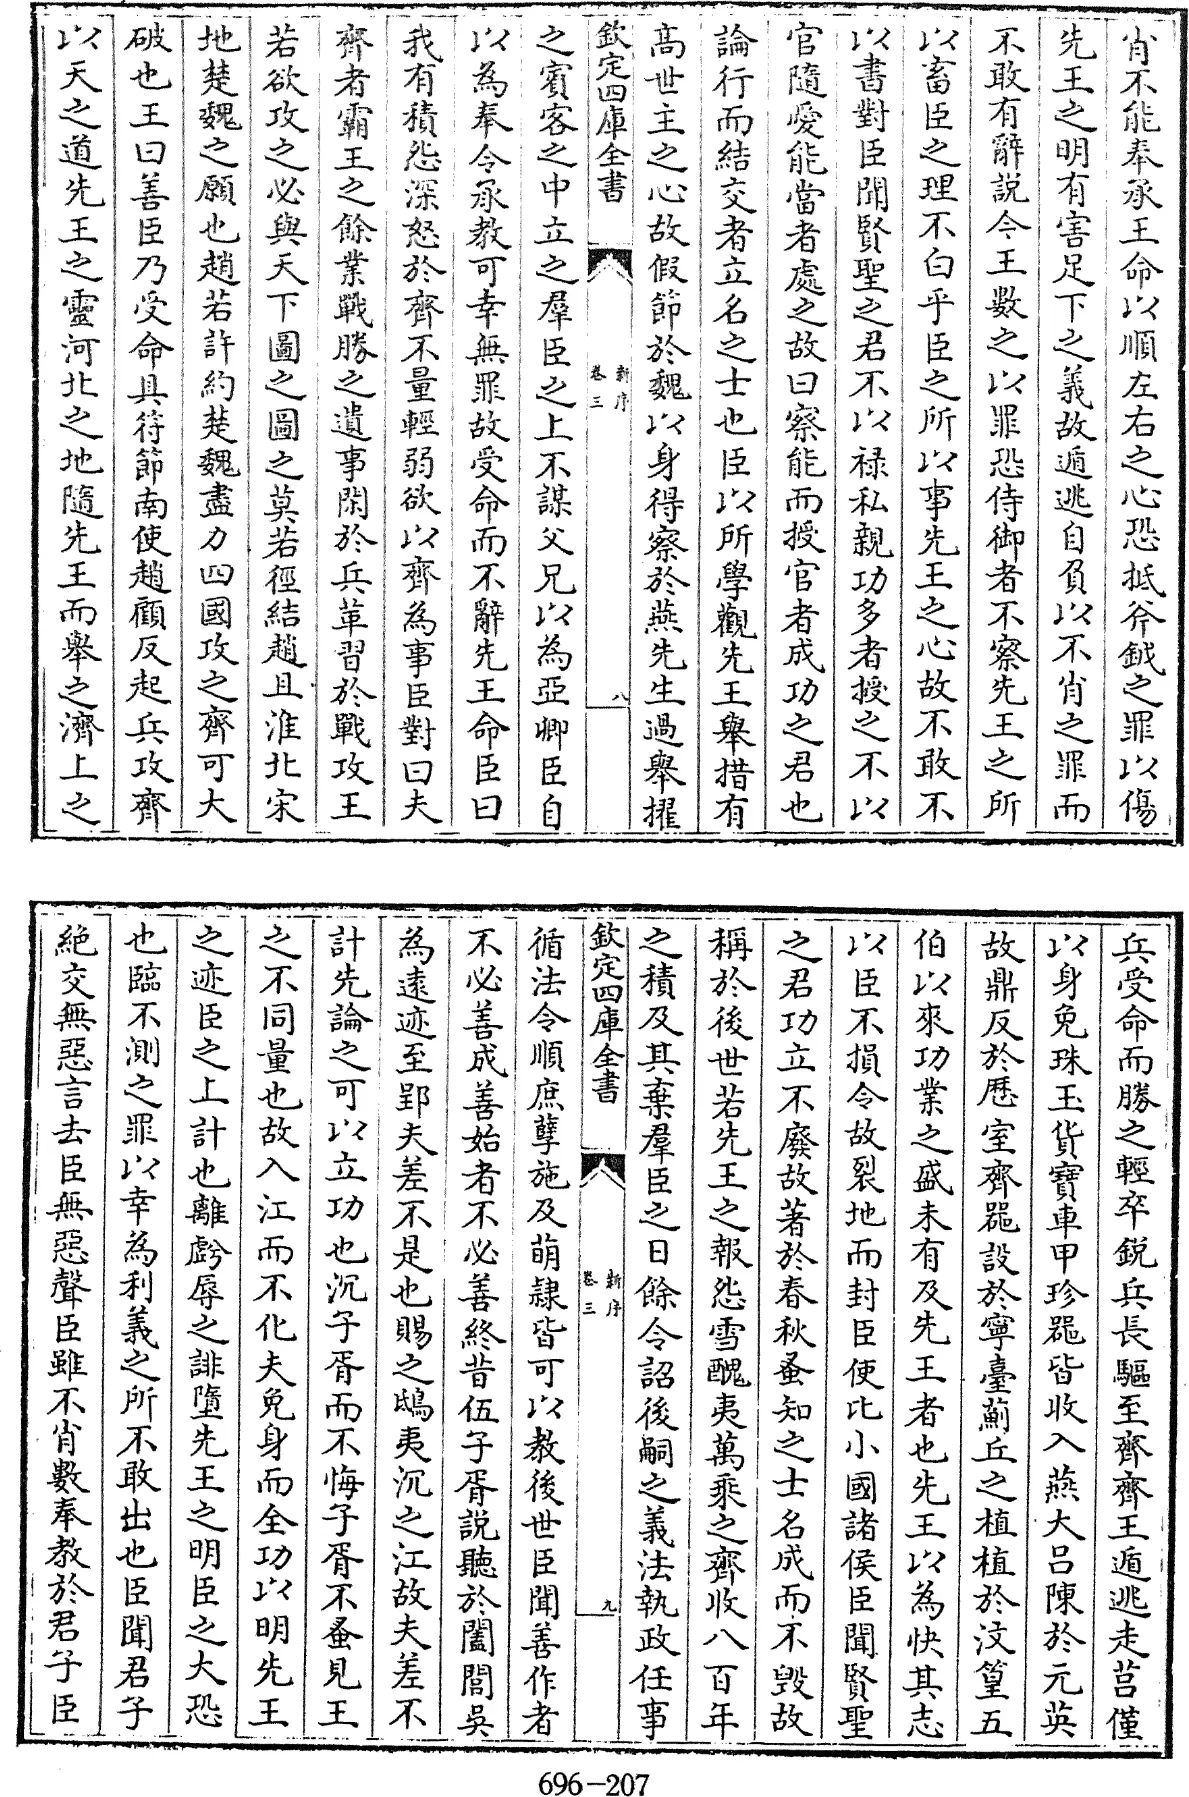 肖不能奉承王命以順左右之心恐抵斧鉞之罪以傷
先王之明有害足下之義故遁逃自負以不肖之罪而
不敢有辭説今王數之以罪恐侍御者不察先王之所
以畜臣之理不白乎臣之所以事先王之心故不敢不
以書對臣聞賢聖之君不以禄私親功多者授之不以
官隨愛能當者處之故曰察能而授官者成功之君也
論行而結交者立名之士也臣以所學觀先王舉措有
髙世主之心故假節於魏以身得察於燕先生過舉擢
欽定四庫全書
新序
卷三
八
之賓客之中立之羣臣之上不謀父兄以為亞卿臣自
以為奉令承教可幸無罪故受命而不辭先王命臣曰
我有積怨深怒於齊不量輕弱欲以齊為事臣對曰夫
齊者霸王之餘業戰勝之遺事閑於兵革習於戰攻王
若欲攻之必與天下圖之圖之莫若徑結趙且淮北宋
地楚魏之願也趙若許約楚魏盡力四國攻之齊可大
破也王曰善臣乃受命具符節南使趙顧反起兵攻齊
以天之道先王之靈河北之地隨先王而舉之濟上之
兵受命而勝之輕卒鋭兵長驅至齊齊王遁逃走莒僅
以身免珠玉貨寶車甲珍器皆收入燕大吕陳於元英
故鼎反於歴室齊器設於寧臺薊丘之植植於汶篁五
伯以來功業之盛未有及先王者也先王以為快其志
以臣不損令故裂地而封臣使比小國諸侯臣聞賢聖
之君功立不廢故著於春秋蚤知之士名成而不毁故
稱於後世若先王之報怨雪醜夷萬乘之齊收八百年
之積及其棄羣臣之日餘令詔後嗣之義法執政任事
欽定四庫全書
新序
卷三
九
循法令順庶孽施及萌隷皆可以教後世臣聞善作者
不必善成善始者不必善終昔伍子胥説聽於闔閭吳
為逺迹至郢夫差不是也賜之鴟夷沉之江故夫差不
計先論之可以立功也沉子胥而不悔子胥不蚤見王
之不同量也故入江而不化夫免身而全功以明先王
之迹臣之上計也離虧辱之誹墮先王之明臣之大恐
也臨不測之罪以幸為利義之所不敢出也臣聞君子
絶交無惡言去臣無惡聲臣雖不肖數奉教於君子臣
696-207